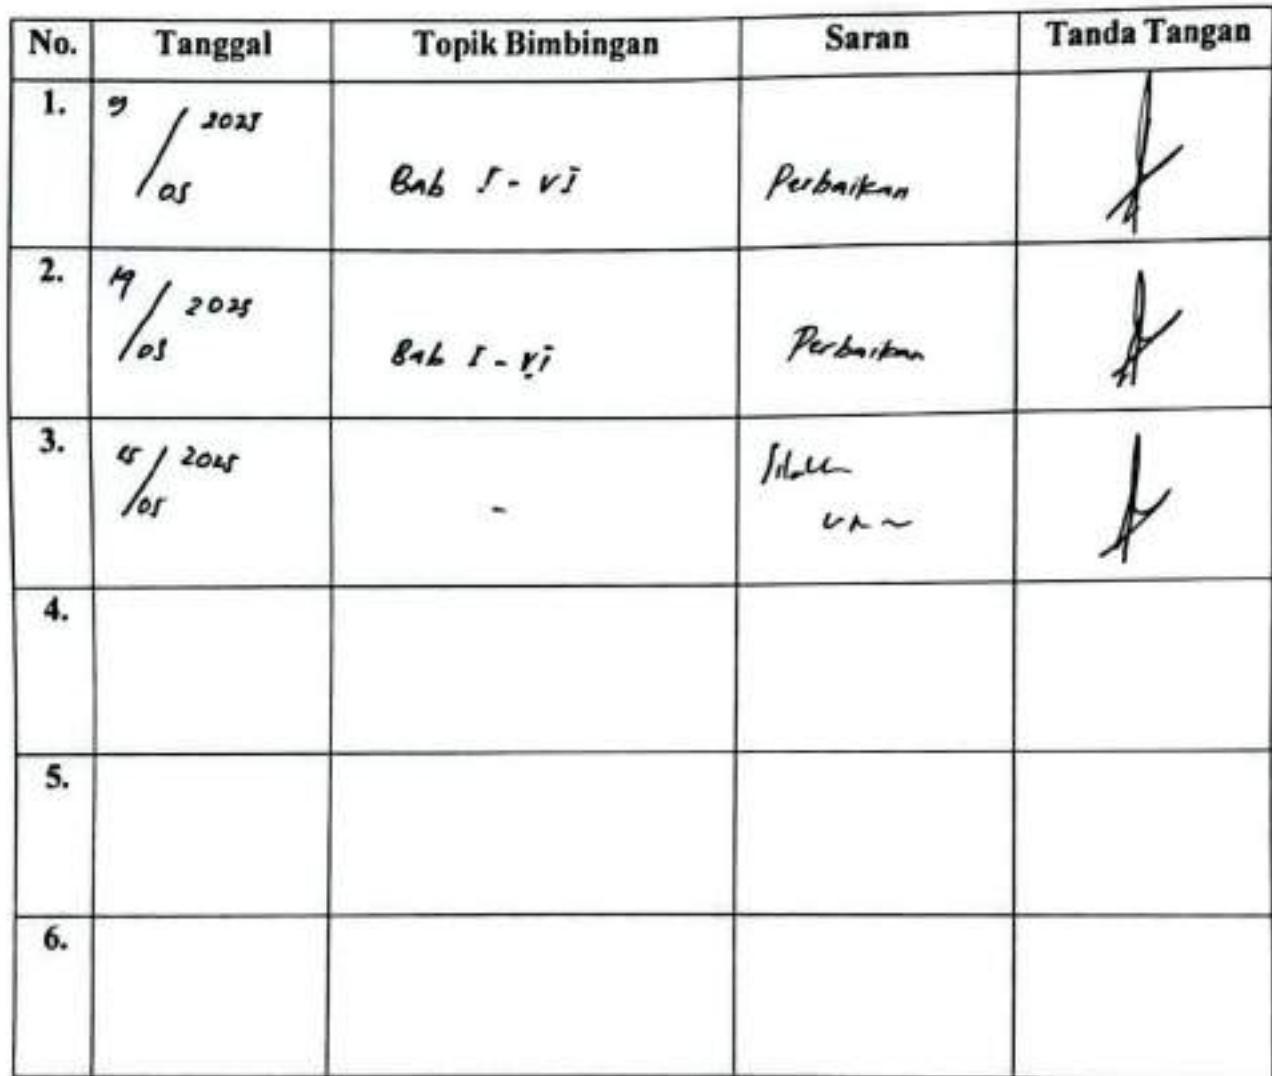 No. Tanggal Topik Bimbingan Saran Tanda Tangan
1. 9 / 05 2025 Bab I - VI Perbaikan
2. 14 / 05 2025 Bab I - VI Perbaikan
3. 15 / 05 2025 -
4.
5.
6.